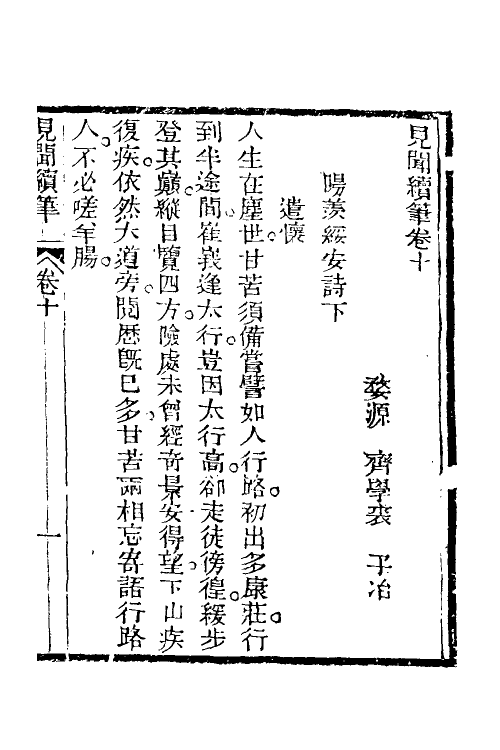 見聞續筆卷十
婺源 齊學裘 子冶
陽羨綏安詩下
遣懷
人生在塵世。甘苦須備嘗。譬如人行路。初出多康莊。行
到半途間。崔嵬逢太行。豈因太行高。卻走徒傍徨。緩步
登其巔。縱目覽四方。險處未曾經。奇景安得望。下山疾
復疾。依然大道旁。閱歷既已多。甘苦兩相忘。寄語行路
人。不必嗟羊腸。
見聞續筆 卷十 一